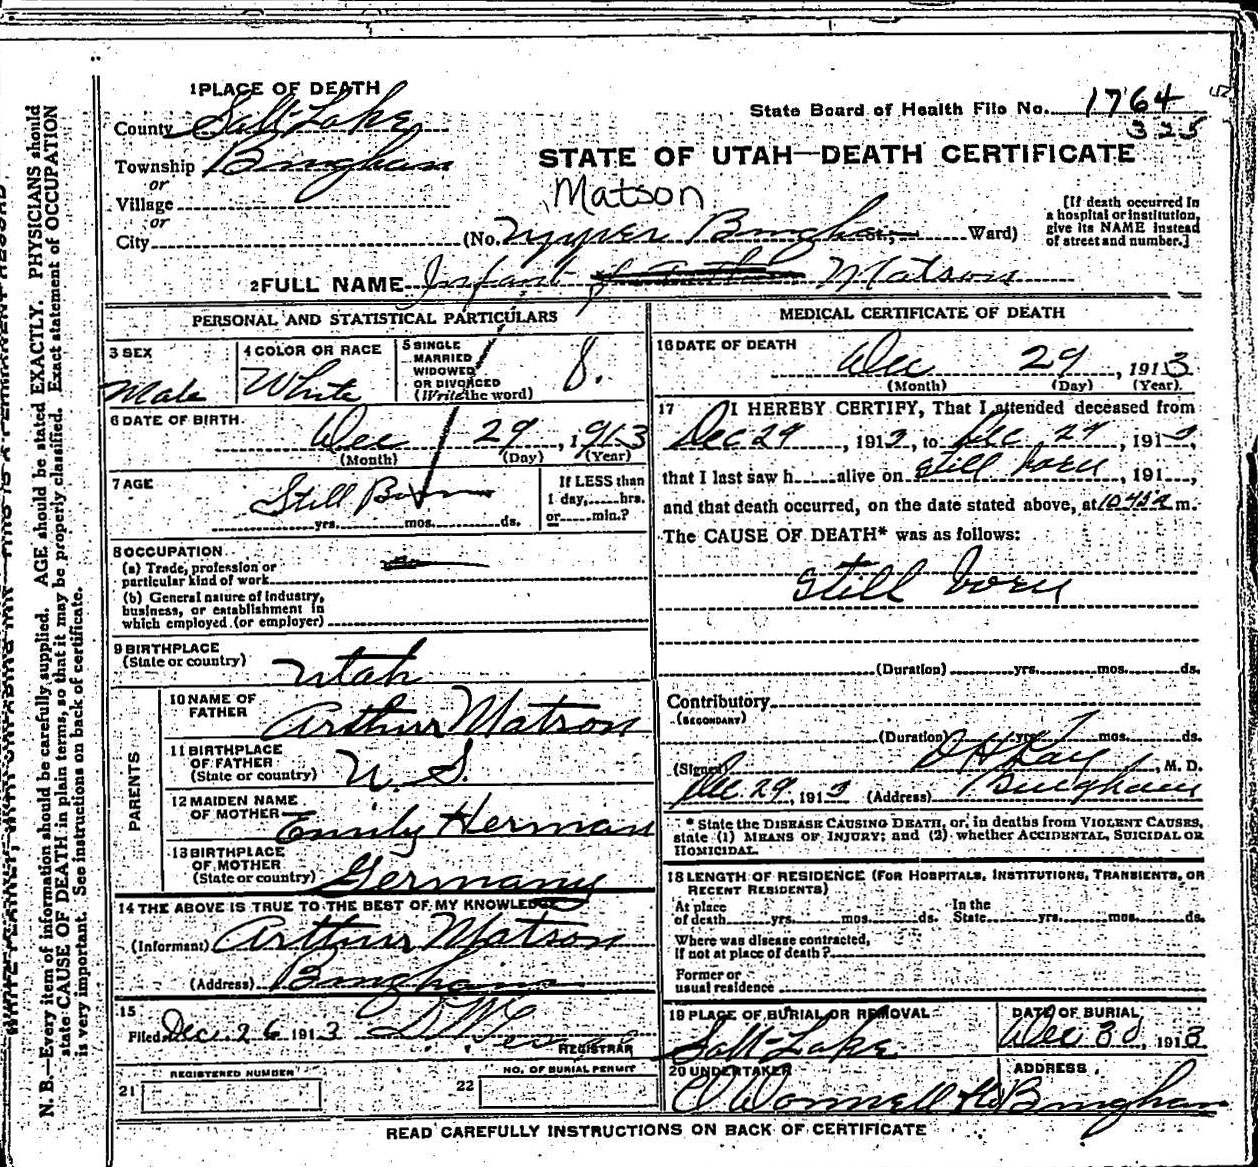 1 PLACE OF DEATH
State Board of Health File No. 1764
325
County Salt Lake
Township Bingham
STATE OF UTAH—DEATH CERTIFICATE
or
Village
Matson
or
City (No. Upper Bingham St., Ward)
[If death occurred in
a hospital or institution,
give its NAME instead
of street and number.]
2 FULL NAME Infant Matson
PERSONAL AND STATISTICAL PARTICULARS
3 SEX
Male
4 COLOR OR RACE
White
5 SINGLE
MARRIED
WIDOWED
OR DIVORCED
(Write the word)
S.
6 DATE OF BIRTH
Dec 29, 1913
(Month) (Day) (Year)
7 AGE
Still Born
yrs. mos. ds.
If LESS than
1 day, hrs.
or min.?
8 OCCUPATION
(a) Trade, profession or
particular kind of work
(b) General nature of industry,
business, or establishment in
which employed (or employer)
9 BIRTHPLACE
(State or country) Utah
PARENTS
10 NAME OF
FATHER Arthur Matson
11 BIRTHPLACE
OF FATHER
(State or country) U. S.
12 MAIDEN NAME
OF MOTHER Emily Herman
13 BIRTHPLACE
OF MOTHER
(State or country) Germany
14 THE ABOVE IS TRUE TO THE BEST OF MY KNOWLEDGE
(Informant) Arthur Matson
(Address) Bingham
15
Filed Dec. 26 1913
REGISTRAR
REGISTERED NUMBER
21
NO. OF BURIAL PERMIT
22
MEDICAL CERTIFICATE OF DEATH
16 DATE OF DEATH
Dec 29, 1913
(Month) (Day) (Year)
17 I HEREBY CERTIFY, That I attended deceased from
Dec 29, 1913, to Dec 29, 1913,
that I last saw h alive on still born, 191 ,
and that death occurred, on the date stated above, at m.
The CAUSE OF DEATH* was as follows:
still born
(Duration) yrs. mos. ds.
Contributory
(SECONDARY)
(Duration) yrs. mos. ds.
(Signed) , M. D.
Dec 29, 1913 (Address) Bingham
* State the DISEASE CAUSING DEATH, or, in deaths from VIOLENT CAUSES,
state (1) MEANS OF INJURY; and (2) whether ACCIDENTAL, SUICIDAL OR
HOMICIDAL.
18 LENGTH OF RESIDENCE (FOR HOSPITALS, INSTITUTIONS, TRANSIENTS, OR
RECENT RESIDENTS)
At place
of death yrs. mos. ds.
In the
State yrs. mos. ds.
Where was disease contracted,
if not at place of death?
Former or
usual residence
19 PLACE OF BURIAL OR REMOVAL
Salt Lake
DATE OF BURIAL
Dec 30, 1913
20 UNDERTAKER
O'Donnell & Co
ADDRESS
Bingham
READ CAREFULLY INSTRUCTIONS ON BACK OF CERTIFICATE
N. B.—Every item of information should be carefully supplied. AGE should be stated EXACTLY. PHYSICIANS should
state CAUSE OF DEATH in plain terms, so that it may be properly classified. Exact statement of OCCUPATION
is very important. See instructions on back of certificate.